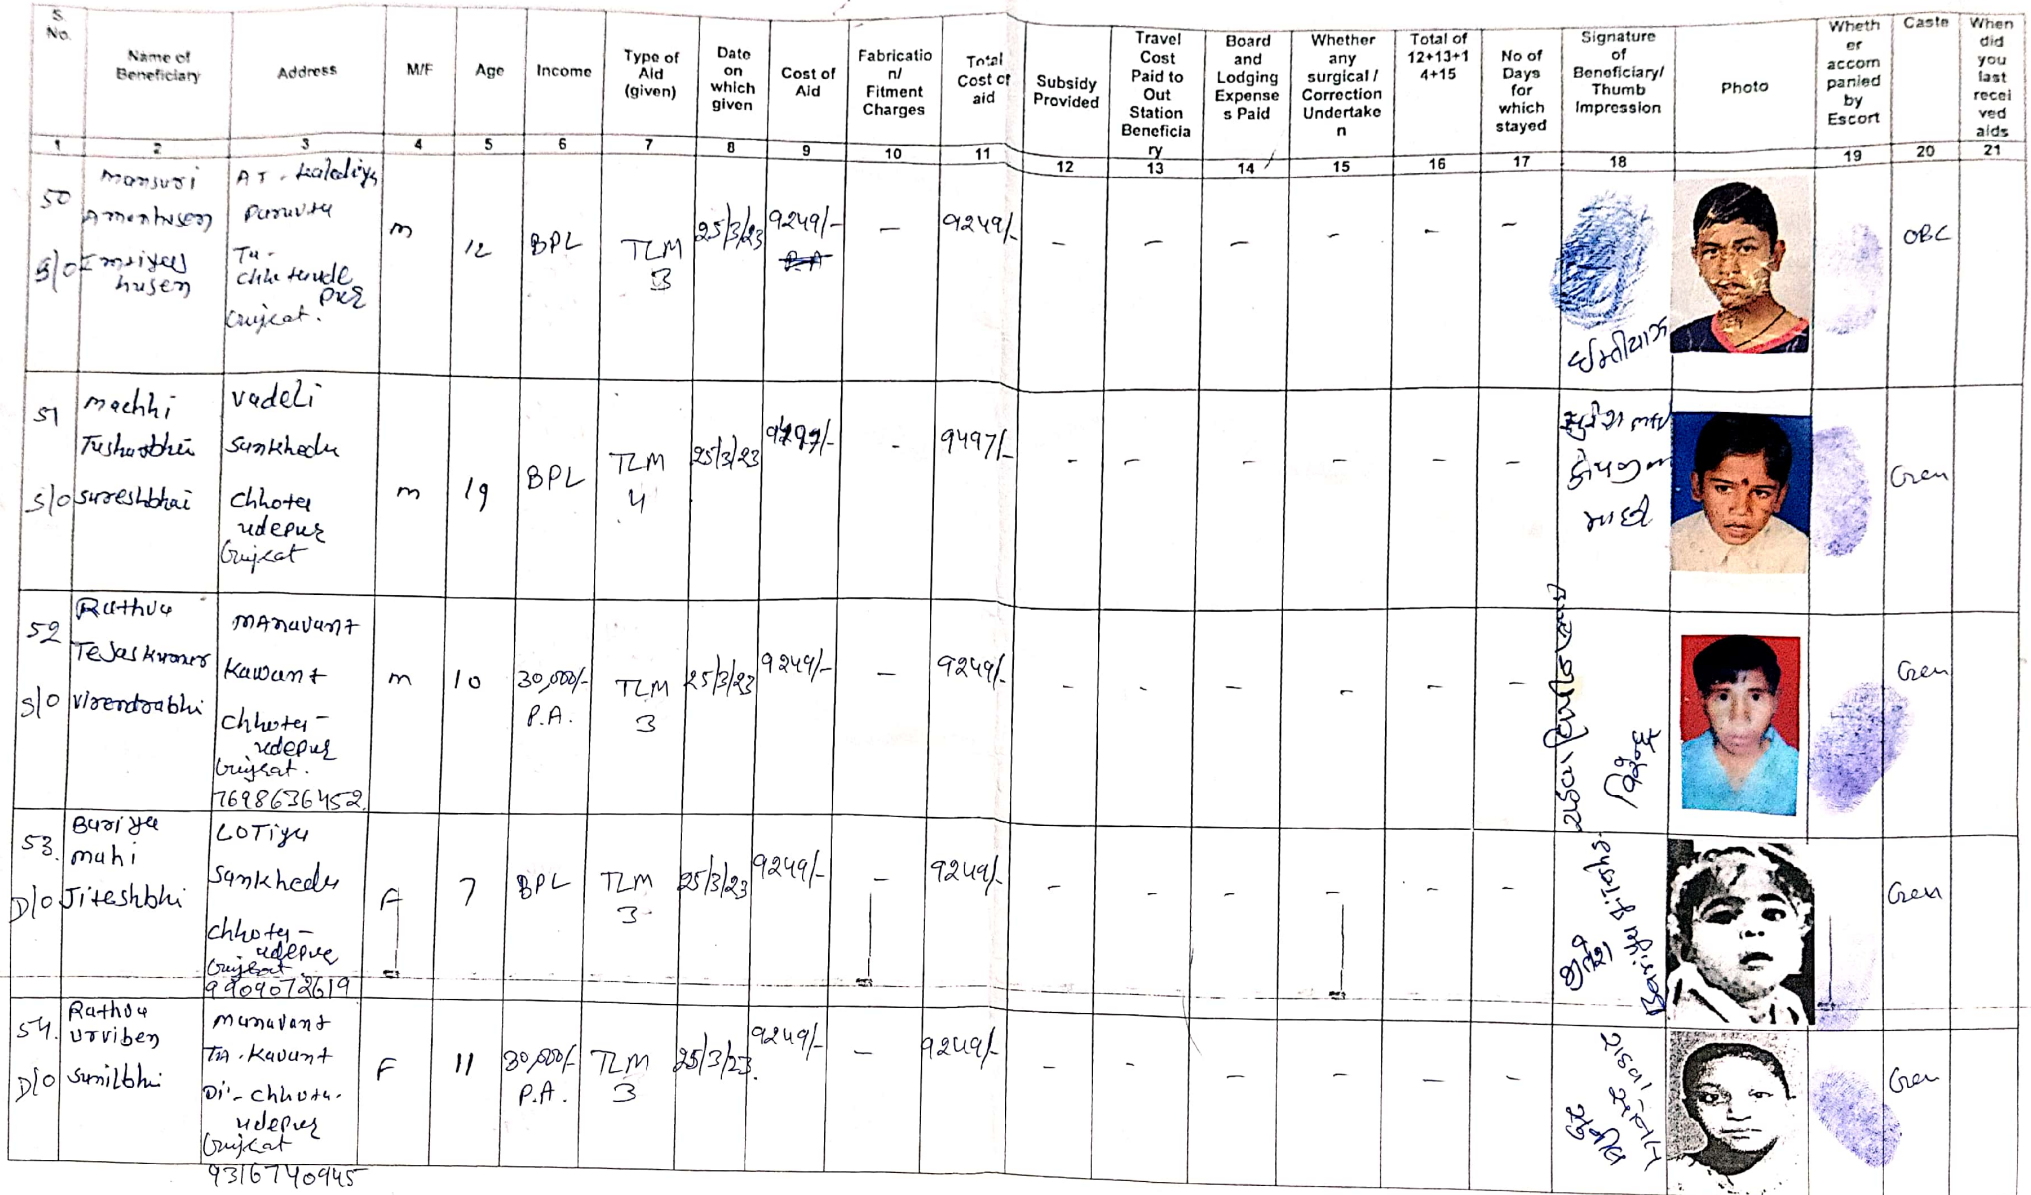 S. No.
Name of Beneficiary
Address
M/F
Age
Income
Type of Aid (given)
Date on which given
Cost of Aid
Fabricatio n/ Fitment Charges
Total Cost of aid
Subsidy Provided
Travel Cost Paid to Out Station Beneficia ry
Board and Lodging Expense s Paid
Whether any surgical / Correction Undertake n
Total of 12+13+1 4+15
No of Days for which stayed
Signature of Beneficiary/ Thumb Impression
Photo
Wheth er accom panied by Escort
Caste
When did you last recei ved aids
1 2 3 4 5 6 7 8 9 10 11 12 13 14 15 16 17 18 19 20 21
50
Mansuri
S/o Imtiyas
husen
AT.
Ta-
Gujrat.
m
12
BPL
TLM
3
25/3/23
9249/-
-
9249/-
- - - - - -
OBC
51
Machhi
Tusharbhai
S/o Sureshbhai
Vadeli
Sankheda
Chhota
udepur
Gujrat
m
19
BPL
TLM
4
25/3/23
9497/-
-
9497/-
- - - - - -
માછી
Gen
52
Rathva
Tejaskumar
S/o Virendrabhi
Manavant
Kawant
Chhota-
udepur
Gujrat.
7698636452
m
10
30,000/-
P.A.
TLM
3
25/3/23
9249/-
-
9249/-
- - - - - -
Gen
53.
Bariya
mahi
D/o Jiteshbhi
LoTiya
Sankheda
Chhota-
udepur
Gujrat
9909072619
F
7
BPL
TLM
3
25/3/23
9249/-
-
9249/-
- - - - - -
Gen
54.
Rathva
Urviben
D/o Sunilbhi
Manavant
Ta. Kavant
Di- Chhota-
udepur
Gujrat
9316740945
F
11
30,000/-
P.A.
TLM
3
25/3/23.
9249/-
-
9249/-
- - - - - -
Gen